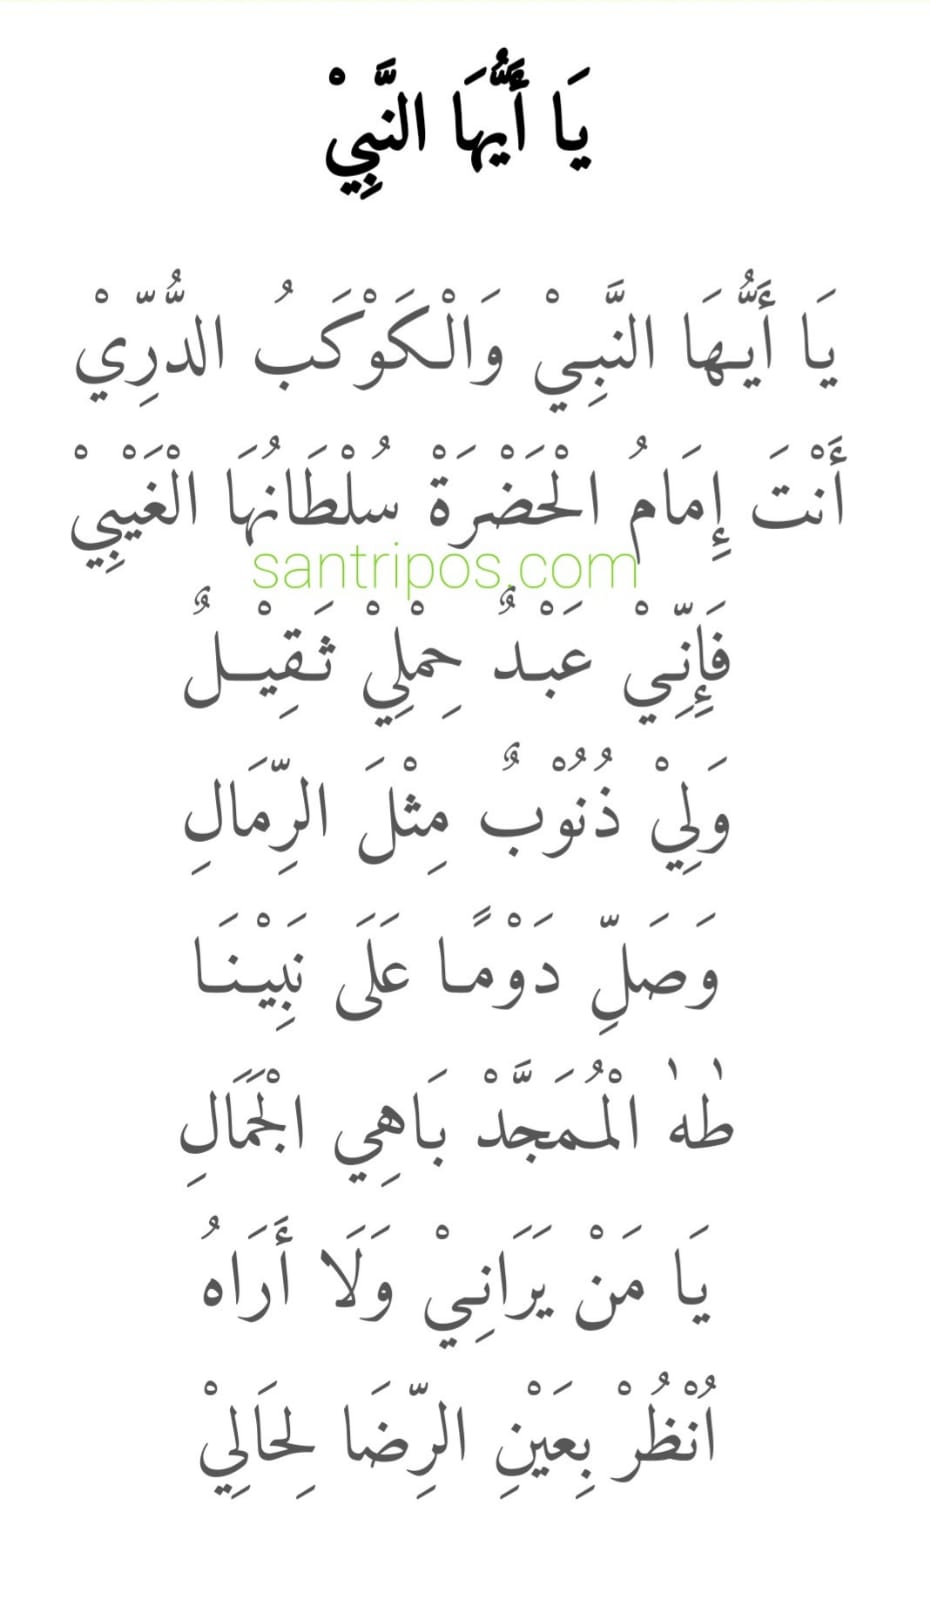 يَا أَيُّهَا النَّبِيْ
يَا أَيُّهَا النَّبِيْ وَالْكَوْكَبُ الدُّرِّيْ
أَنْتَ إِمَامُ الْحَضْرَةْ سُلْطَانُهَا الْغَيْبِيْ
santripos.com
فَإِنِّيْ عَبْدٌ حِمْلِيْ ثَقِيْلٌ
وَلِيْ ذُنُوْبٌ مِثْلَ الرِّمَالِ
وَصَلِّ دَوْمًا عَلَى نَبِيْنَا
طٰهٰ الْمُمَجَّدْ بَاهِي الْجَمَالِ
يَا مَنْ يَرَانِيْ وَلَا أَرَاهُ
اُنْظُرْ بِعَيْنِ الرِّضَا لِحَالِيْ